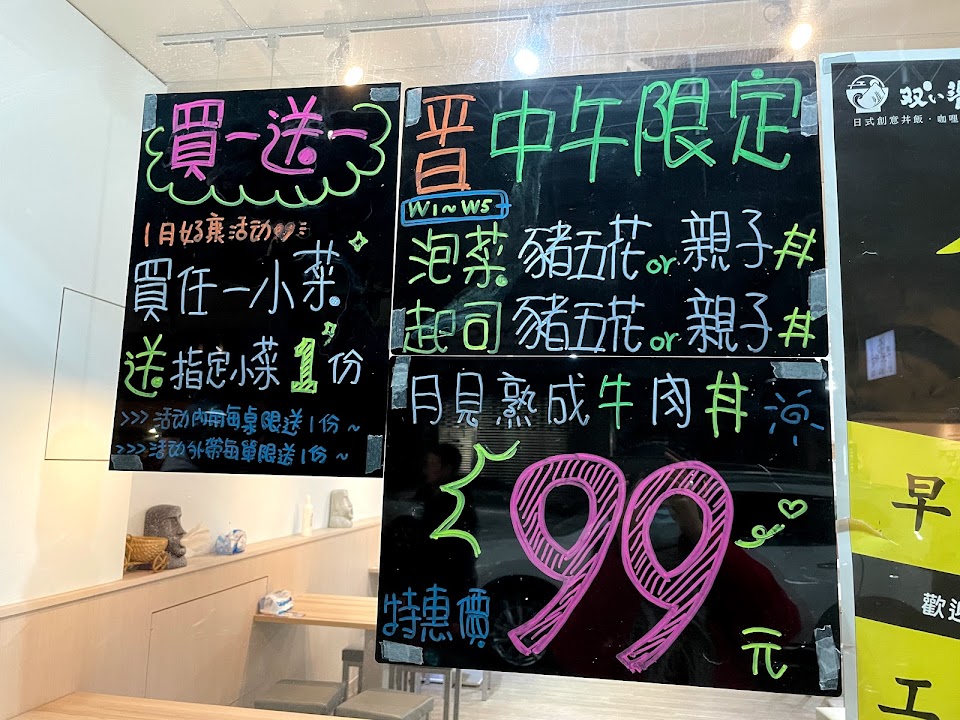 買一送一
1月好康活動
買任一小菜
送指定小菜1份
>>> 活動內用每桌限送1份~
>>> 活動外帶每單限送1份~
晋 中午限定
W1~W5
泡菜 豬五花 or 親子丼
起司 豬五花 or 親子丼
月見熟成牛肉丼
特惠價 99元
双い
日式創意丼飯·咖哩
早
歡迎
工